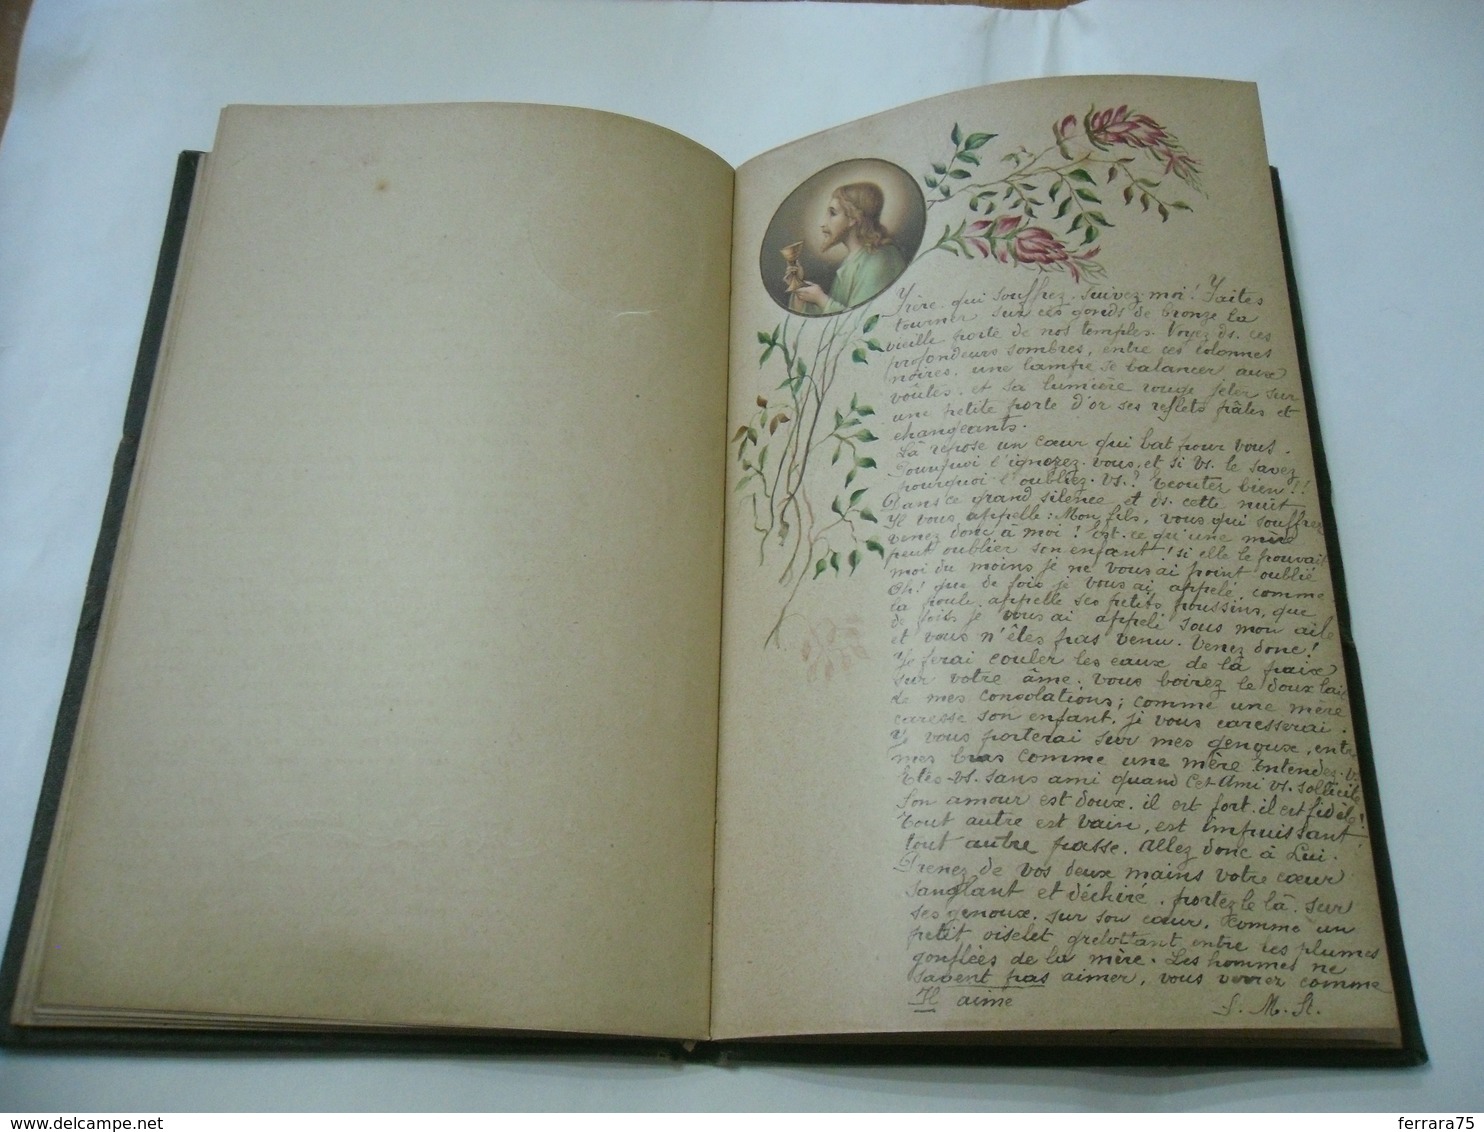 Frère qui souffrez. suivez-moi! Faites
tourner sur ces gonds de bronze la
vieille porte de nos temples. Voyez ds. ces
profondeurs sombres, entre ces colonnes
noires. une lampe se balancer aux
voûtes. et sa lumière rouge jeter sur
une petite porte d'or ses reflets pâles et
changeants.
Là repose un cœur qui bat pour vous.
Pourquoi l'ignorez-vous, et si vs. le savez
pourquoi l'oubliez-vs.? Ecoutez bien!!
Dans ce grand silence et ds. cette nuit
Il vous appelle: Mon fils, vous qui souffrez
venez donc à moi! Est-ce qu'une mère
peut oublier son enfant! si elle le pouvait
moi du moins je ne vous ai point oublié
Oh! que de fois je vous ai appelé comme
la poule appelle ses petits poussins, que
de fois je vous ai appelé sous mon aile
et vous n'êtes pas venu. Venez donc!
Je ferai couler les eaux de la paix
sur votre âme. vous boirez le doux lait
de mes consolations; comme une mère
caresse son enfant. je vous caresserai.
Je vous porterai sur mes genoux, entre
mes bras comme une mère Entendez-v.
Etes-vs. sans ami quand Cet Ami vs. sollicite
Son amour est doux. il est fort. il est fidèle!
Tout autre est vain, est impuissant
tout autre passe. Allez donc à Lui.
Prenez de vos deux mains votre cœur
sanglant et déchiré. portez le là. sur
ses genoux. sur son cœur. Comme un
petit oiselet grelottant entre les plumes
gonflées de la mère. Les hommes ne
savent pas aimer, vous verrez comme
Il aime S. M. St.
ferrara75